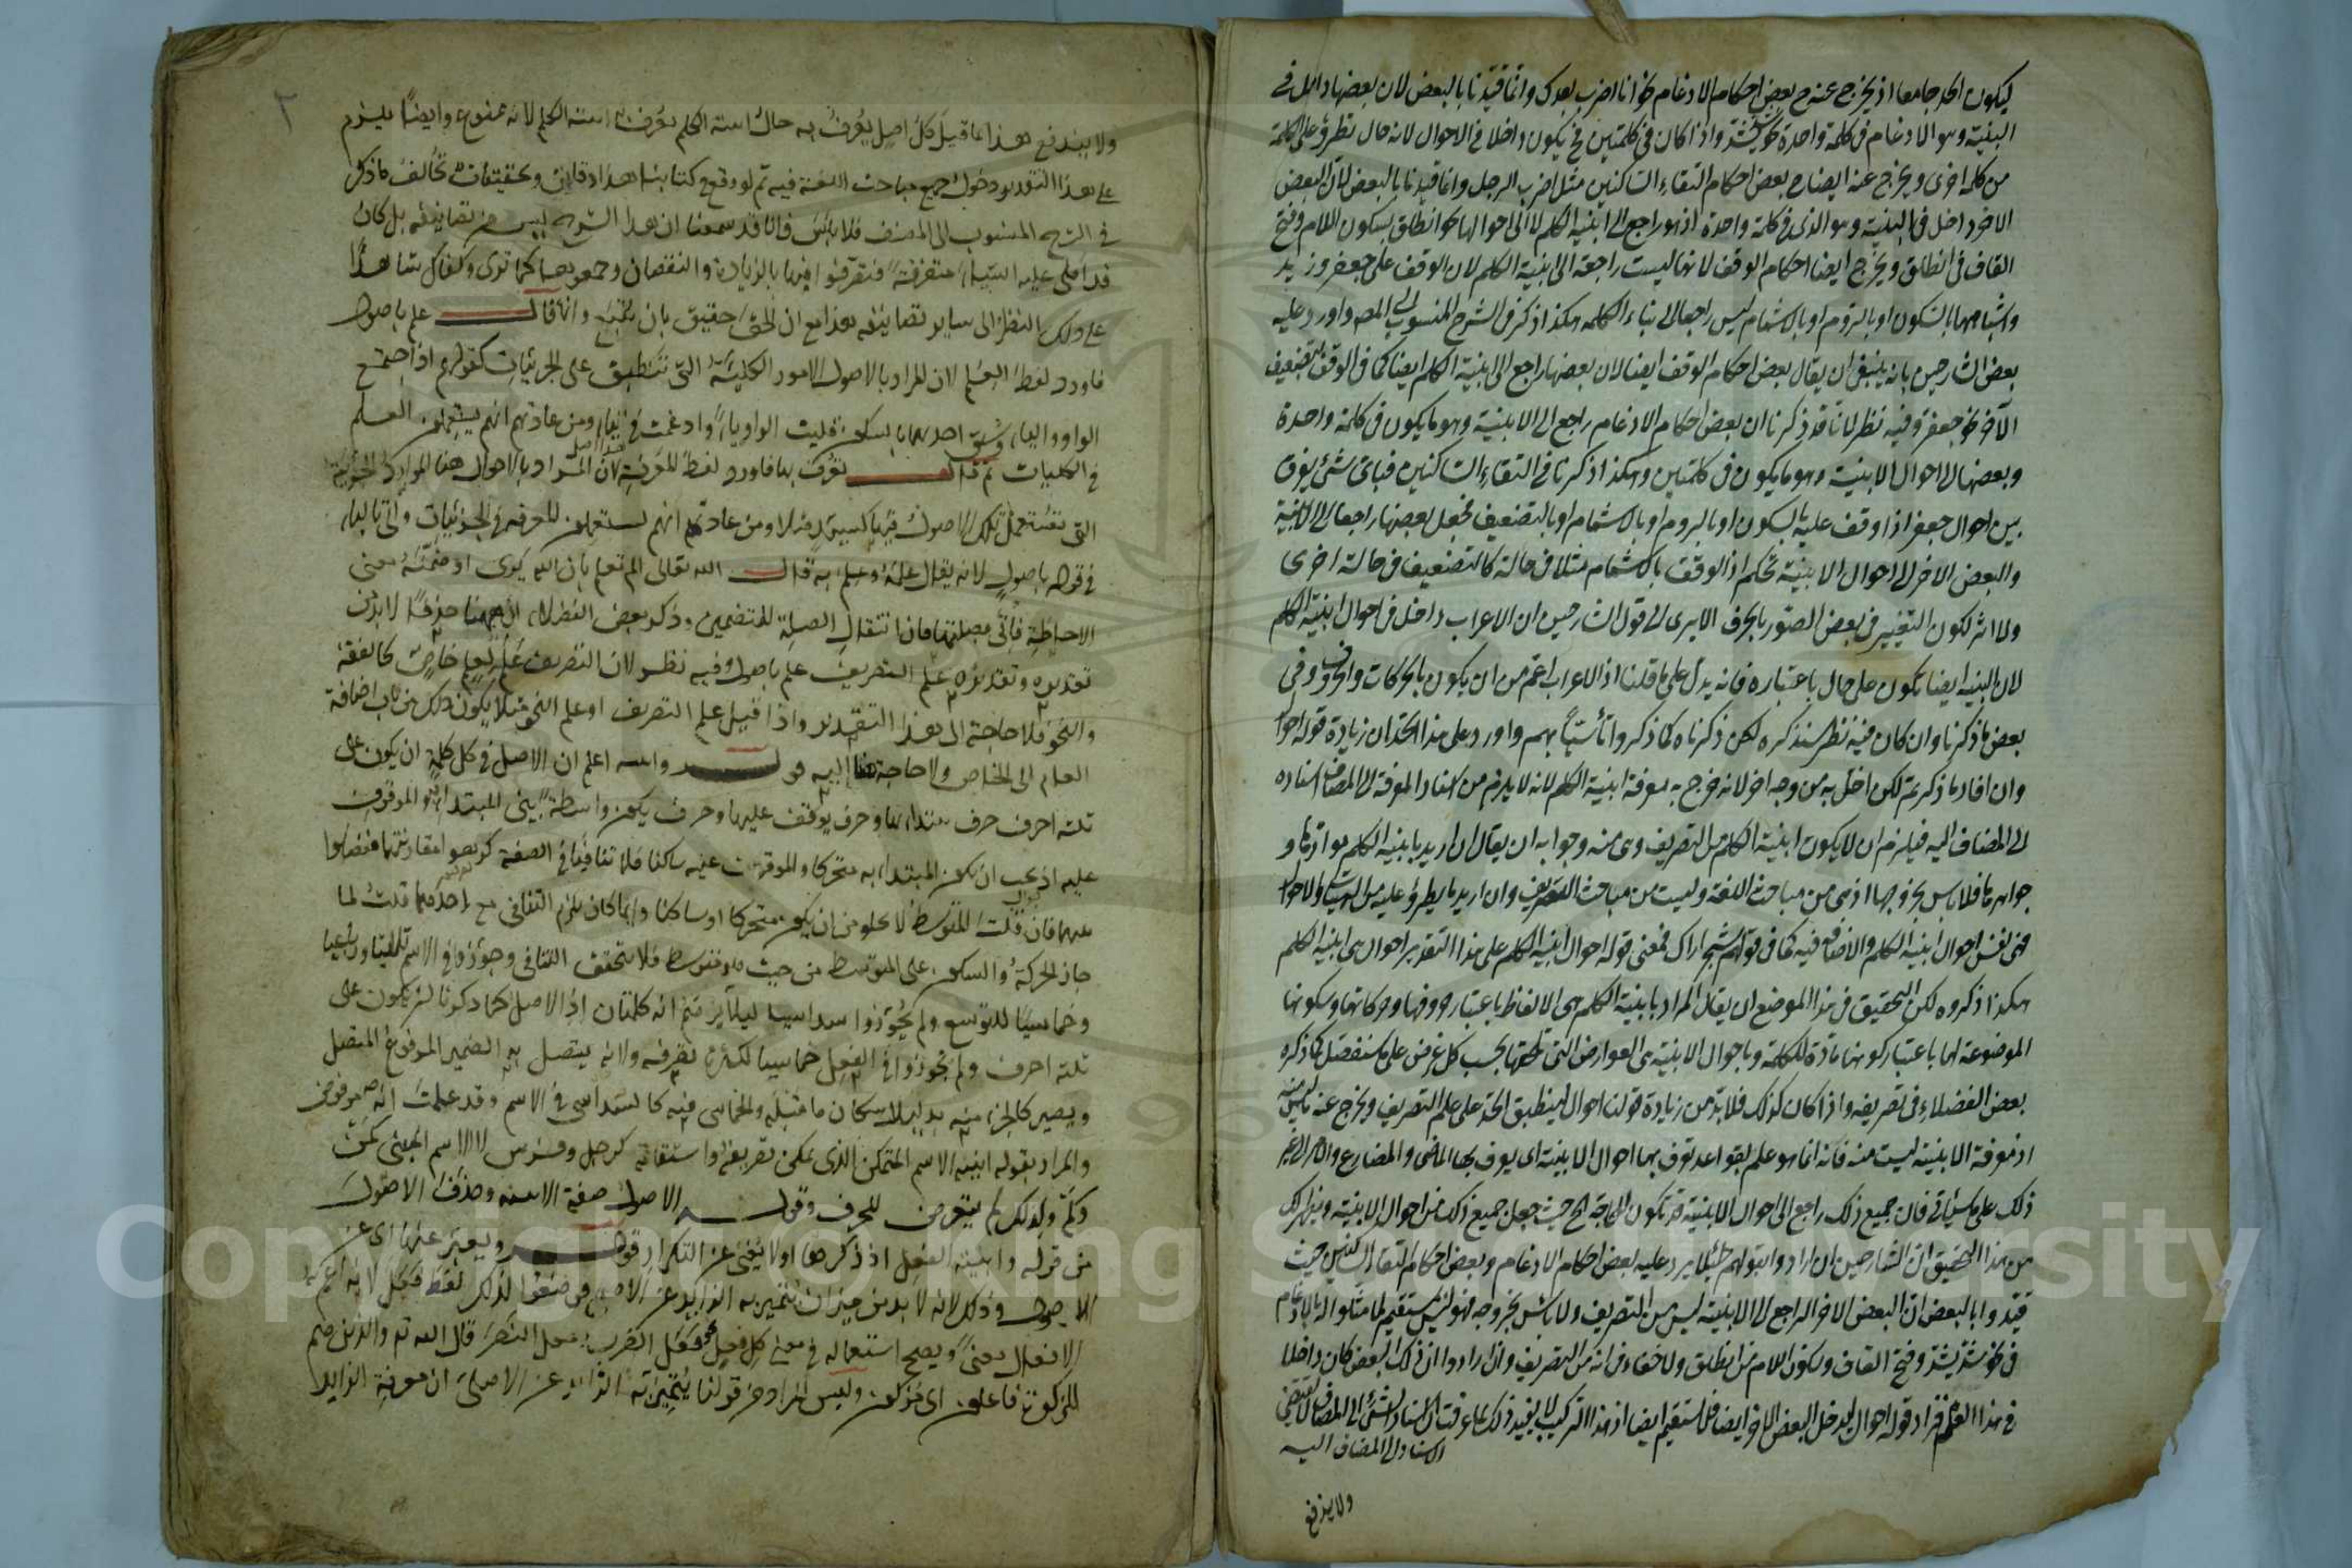 ليكون الحد جامعا اذ يخرج عنه ح بعض احكام الادغام نحو انا اضرب بعدك وانما قيدنا بالبعض لان بعضها داخل في
البنية وهو الادغام في كلمة واحدة نحو يشد واذا كان في كلمتين فح يكون داخلا في الاحوال لانه حال تطرؤ على الكلمة
من كلمة اخرى ويخرج عنه ايضا ح بعض احكام التقاء الساكنين مثل اضرب الرجل وانما قيدنا بالبعض لان البعض
الاخر داخل في البنية وهو الذي في كلمة واحدة اذ هو راجع الى ابنية الكلم لا الى احوالها نحو انطلق بسكون اللام وفتح
القاف في انطلق ويخرج ايضا احكام الوقف لانها ليست راجعة الى ابنية الكلم لان الوقف على جعفر وزيد
واشباههما بالسكون او بالروم او بالاشمام ليس راجعا الى بناء الكلمة هكذا ذكر في الشرح المنسوب الى المص واورد عليه
بعض الشارحين بانه ينبغي ان يقال بعض احكام الوقف ايضا لان بعضها راجع الى ابنية الكلم ايضا كما في الوقف بتضعيف
الآخر نحو جعفر وفيه نظر لانا قد ذكرنا ان بعض احكام الادغام راجع الى الابنية وهو ما يكون في كلمة واحدة
وبعضها الى احوال الابنية وهو ما يكون في كلمتين وهكذا ذكرنا في التقاء الساكنين فباى شئ يفرق
بين احوال جعفر اذا وقف عليه بالسكون او بالروم او بالاشمام او بالتضعيف فجعل بعضها راجعا الى الابنية
والبعض الاخر الى احوال الابنية تحكم اذ الوقف بالاشمام مثلا في حالة كالتضعيف في حالة اخرى
ولا اثر لكون التغيير في بعض الصور بالحرف الا يرى الى قول الشارحين ان الاعراب داخل في احوال ابنية الكلم
لان البنية ايضا تكون على حال باعتباره فانه يدل على ما قلنا اذ الاعراب اعم من ان يكون بالحركات والحروف وفي
بعض ما ذكرنا وان كان فيه نظر سنذكره لكن ذكرناه كما ذكروا تأسيا بهم واورد على هذا الحد ان زيادة قوله احوال
وان افاد ما ذكرتم لكن اخل به من وجه اخر لانه خرج به معرفة ابنية الكلم لانه لا يلزم من اسناد المعرفة الى المضاف اسناده
الى المضاف اليه فيلزم ان لا يكون ابنية الكلم من التصريف وهي منه وجوابه ان يقال ان اريد بابنية الكلم موادها و
جواهرها فلا بأس بخروجها اذ هي من مباحث اللغة وليست من مباحث التصريف وان اريد ما يطرؤ عليه من الهيئات والاحوال
فهي نفس احوال ابنية الكلم والاضافة فيه كما في قولهم شجر اراك فمعنى قوله احوال ابنية الكلم على هذا التقدير احوال هي ابنية الكلم
هكذا ذكروه لكن التحقيق في هذا الموضع ان يقال المراد بابنية الكلم هي الالفاظ باعتبار حروفها وحركاتها وسكونها
الموضوعة لها باعتبار كونها مادة للكلمة وباحوال الابنية هي العوارض التي تلحقها بحسب كل غرض على ما سنفصل كما ذكره
بعض الفضلاء في تصريفه واذا كان كذلك فلا بد من زيادة قولنا احوال لينطبق الحد على علم التصريف ويخرج عنه ما ليس منه
اذ معرفة الابنية ليست منه فانه انما هو علم بقواعد تعرف بها احوال الابنية اى يعرف بها الماضي والمضارع والامر الى غير
ذلك على ما سيأتي فان جميع ذلك راجع الى احوال الابنية قد تكون للحاجة الخ حيث جعل جميع ذلك من احوال الابنية ويظهر لك
من هذا التحقيق ان الشارحين ان ارادوا بقولهم لئلا يرد عليه بعض احكام الادغام وبعض احكام التقاء الساكنين حيث
قيدوا بالبعض ان البعض الاخر الراجع الى الابنية ليس من التصريف ولا بأس بخروجه فهو ليس بمستقيم لما مثلوا له بالادغام
في نحو شد يشد وفتح القاف وسكون اللام من انطلق ولا خفاء في انه من التصريف وان ارادوا ان ذلك البعض كان داخلا
في هذا العلم فزاد قوله احوال ليدخل البعض الاخر ايضا فلا يستقيم ايضا اذ هذا التركيب لا يفيد ذلك لما عرفت ان اسناد الشئ الى المضاف لا يقتضي
الاسناد الى المضاف اليه
ولا يندفع
٢
ولا يندفع هذا بما قيل كل اصل يعرف به حال ابنية الكلم يعرف به ابنية الكلم لانه ممنوع وايضا يلزم
على هذا التقدير دخول جميع مباحث اللغة فيه ثم لو وقع في كتابنا هذا دقايق وتحقيقات تخالف ما ذكر
في الشرح المنسوب الى المصنف فلا بأس فانا قد سمعنا ان هذا الشرح ليس من تصانيفه بل كان
قد املى عليه اشياء متفرقة فتصرفوا فيها بالزيادة والنقصان وجمعوها كما ترى وكفاك شاهدا
على ذلك النظر الى ساير تصانيفه هذا مع ان الحق حقيق بان يتبع وانما قال علم باصول
فاورد لفظ العلم لان المراد بالاصول الامور الكلية التي تنطبق على الجزئيات كقولهم اذا اجتمع
الواو والياء وسبق احديهما بالسكون قلبت الواو ياء وادغمت في الياء ومن عادتهم انهم يستعملون العلم
في الكليات ثم قال تعرف بها فاورد لفظ المعرفة لان المراد بالاحوال هنا الموارد الجزئية
التي تستعمل تلك الاصول فيها كسيد مثلا ومن عادتهم انهم يستعملون المعرفة في الجزئيات واتى بالباء
في قوله باصول لانه يقال علمه وعلم به قال الله تعالى الم تعلم بان الله يرى او ضمنه معنى
الاحاطة فأتى بصلتها فان انتقال الصلة للتضمين وذكر بعض الفضلاء ان ههنا حذفا لا بد من
تقديره وتقديره علم التصريف علم باصول وفيه نظر لان التصريف علم لعلم خاص كالفقه
والنحو فلا حاجة الى هذا التقدير واذا قيل علم التصريف او علم النحو مثلا يكون ذلك من باب اضافة
العام الى الخاص ولا حاجة اليه قوله والله اعلم ان الاصل في كل كلمة ان يكون على
ثلثة احرف حرف يبتدأ بها وحرف يوقف عليها وحرف يكون واسطة بين المبتدأ به والموقوف
عليه اذ يجب ان يكون المبتدأ به متحركا والموقوف عليه ساكنا فلما تنافيا في الصفة كرهوا مقارنتهما ففصلوا
بينهما فان قلت المتوسط لا يخلو من ان يكون متحركا او ساكنا وايما كان يلزم التنافي مع احدهما قلت لما
جاز الحركة والسكون على المتوسط من حيث هو متوسط فلا يتحقق التنافي وجوزوا في الاسم ثلاثيا ورباعيا
وخماسيا للتوسع ولم يجوزوا سداسيا ليلا يتوهم انه كلمتان اذ الاصل كما ذكرنا ان يكون على
ثلثة احرف ولم يجوزوا في الفعل خماسيا لكثرة تصرفه ولانه يتصل به الضمير المرفوع المتصل
ويصير كالجزء منه بدليل اسكان ما قبله والخماسي فيه كالسداسي في الاسم وقد علمت انه مرفوض
والمراد بقوله ابنية الاسم المتمكن الذي يمكن تصريفه واشتقاقه كرجل وفرس لا الاسم المبني كمن
وكم ولذلك لم يتعرض للحرف وقوله الاصول صفة الابنية وحذف الاصول
من قوله وابنية الفعل اذ ذكرها اولا يغني عن التكرار قوله ويعبر عنها اى عن
الاصول وذلك لانه لا بد من ميزان يتميز به الزايد عن الاصلي فوضعوا لذلك لفظ فعل لانه اعم
الافعال معنى ويصح استعماله في معنى كل فعل نحو فعل الضرب وفعل النصر قال الله تع والذين هم
للزكوة فاعلون اى مزكون وليس المراد من قولنا يتميز به الزايد عن الاصلي ان معرفة الزايد